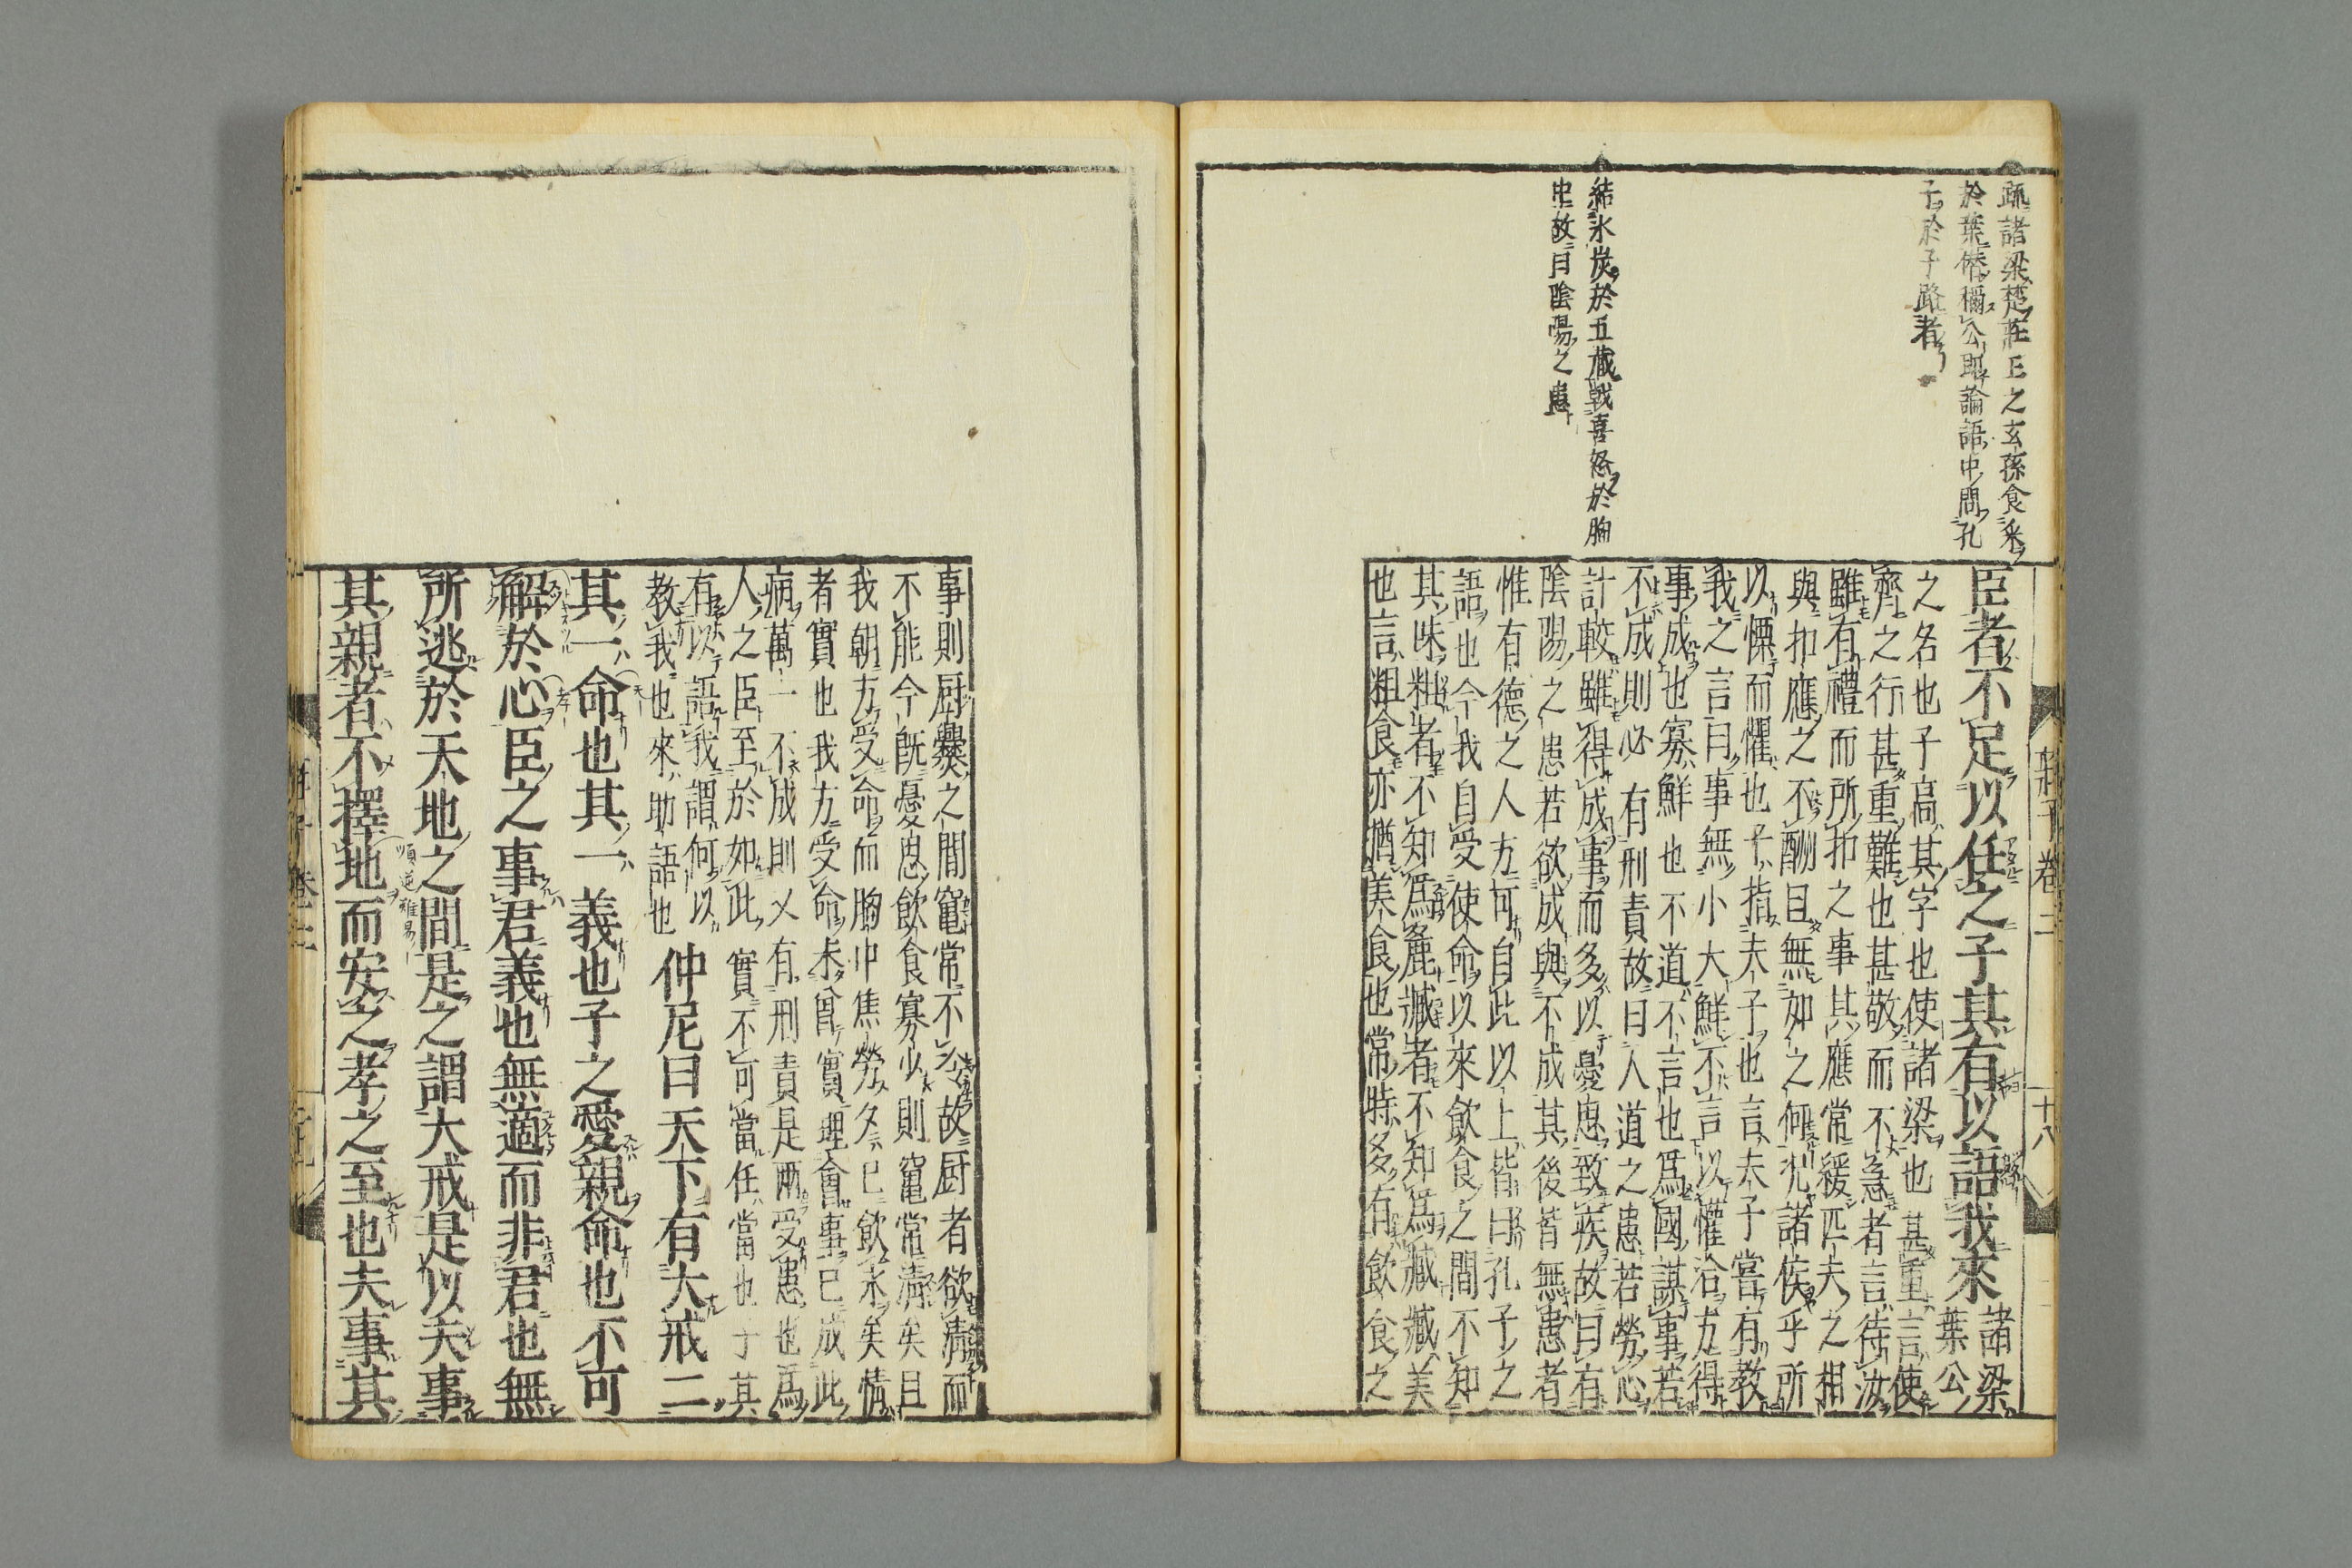 疏諸梁楚莊王之玄孫食采
於葉僣稱公即論語中問孔
子於子路者
結氷炭於五藏戰喜怒於胸
中故曰陰陽之患
臣者不足以任之子其有以語我來
諸梁
葉公
之名也子高其字也使諸梁也甚重言使
齊之行甚重難也甚敬而不急者言待汝
雖有禮而所扣之事其應常緩匹夫之相
與扣應之不酬且無如之何況諸侯乎所
以慄而懼也子指夫子也言夫子當有教
我之言曰事無小大鮮不言以懽洽方得
事成也寡鮮也不道不言也爲國謀事若
不成則必有刑責故曰人道之患若勞心
計較雖得成事而多以憂思致疾故曰有
陰陽之患若欲成與不成其後皆無患者
惟有德之人方可自此以上皆曰孔子之
語也今我自受使命以來飲食之間不知
其味粗者不知爲麁臧者不知爲臧臧美
也言粗食亦猶美食也常時多有飲食之
莊子卷二
十八
事則厨爨之間竈常不冷故厨者欲清而
不能今既憂思飲食寡少則竈常清矣且
我朝方受命而胸中焦勞夕已飲氷矣情
者實也我方受命未曾實理會事已成此
病萬一不成則又有刑責是兩受患也爲
人之臣至於如此實不可當任當也子其
有以語我謂何以
教我也來助語也
仲尼曰天下有大戒二
其一命也其一義也子之愛親命也不可
解於心臣之事君義也無適而非君也無
所逃於天地之間是之謂大戒是以夫事
其親者不擇地而安之孝之至也夫事其